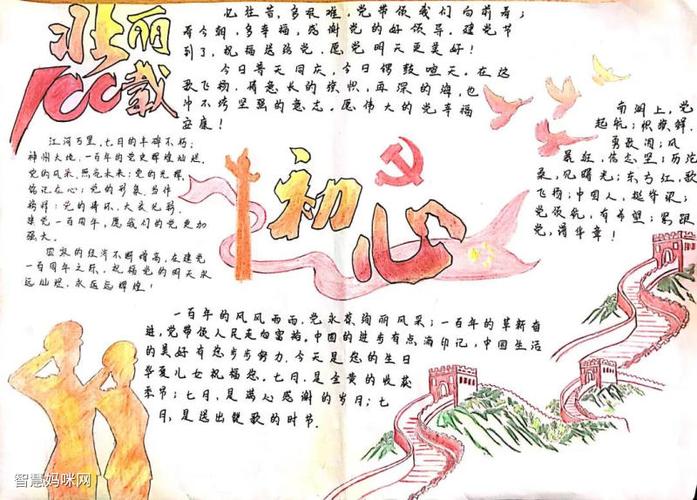 壮丽
100载
忆往昔，多艰难，党带领我们向前奔；
看今朝，多幸福，感谢党的好领导，建党节
到了，祝福送给党，愿党明天更美好！
今日普天同庆，今日锣鼓喧天，在这
歌飞扬，再深的海，也
冲不垮坚强的意志，愿伟大的党幸福
安康！
江河万里，七月的丰碑不朽；
神州大地，一百年的党史辉煌灿烂。
党的风采，照亮未来；党的光辉，
铭记在心；党的形象，
党的情怀，
建党一百周年，愿我们的党更加
强大。
国家的经济不断增高，在建党
一百周年之际，祝福党的明天永
远灿烂，永远辉煌！
初心
南湖上，党
起航；
勇敢闯；风
信念坚；历沧
桑，见曙光；东方红，歌
飞扬；中国人，挺脊梁；
党领航，有希望；
党，谱华章！
一百年的风风雨雨，党永葆绚丽风采；一百年的革新奋
进，党带领人民走向富裕。中国的进步有点滴印记，中国生活
的美好有您步步努力。今天是您的生日
华夏儿女祝福您。七月，是金黄的收获
季节；七月，是满心感谢的岁月；七
月，是送出赞歌的时节。
智慧妈咪网